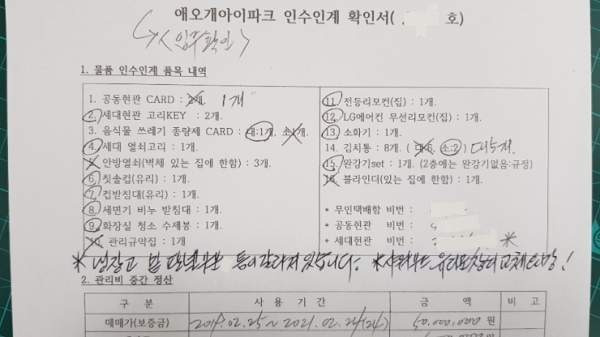 애오개아이파크 인수인계 확인서( 호)
<입주확인>
1. 물품 인수인계 품목 내역
1. 공동현관 CARD : 2개. 1개
2. 세대현관 고리KEY : 2개.
3. 음식물 쓰레기 종량제 CARD : 대:1개, 소:1개.
4. 세대 열쇠고리 : 1개.
5. 안방열쇠(벽체 있는 집에 한함) : 3개.
6. 칫솔컵(유리) : 1개.
7. 컵받침대(유리) : 1개.
8. 세면기 비누 받침대 : 1개.
9. 화장실 청소 수세봉 : 1개.
10. 관리규약집 : 1개
11. 전등리모컨(집) : 1개.
12. LG에어컨 무선리모컨(집) : 1개.
13. 소화기 : 1개.
14. 김치통 : 8개. ( 소:2) 대5개.
15. 완강기set : 1개. (2층에는 완강기없음-규정)
16. 블라인더(있는 집에 한함) : 1개.
* 무인택배함 비번 :
* 공동현관 비번 :
* 세대현관 비번 : *
* 냉장고 밑 판넬부분 틈이 갈라져있습니다. * 샤워부스 유리 교체
2. 관리비 중간 정산
구 분 사 용 기 간 금 액 비 고
매매가(보증금) 2019.02.25 ~ 2021.02.24(24) 50,000,000 원